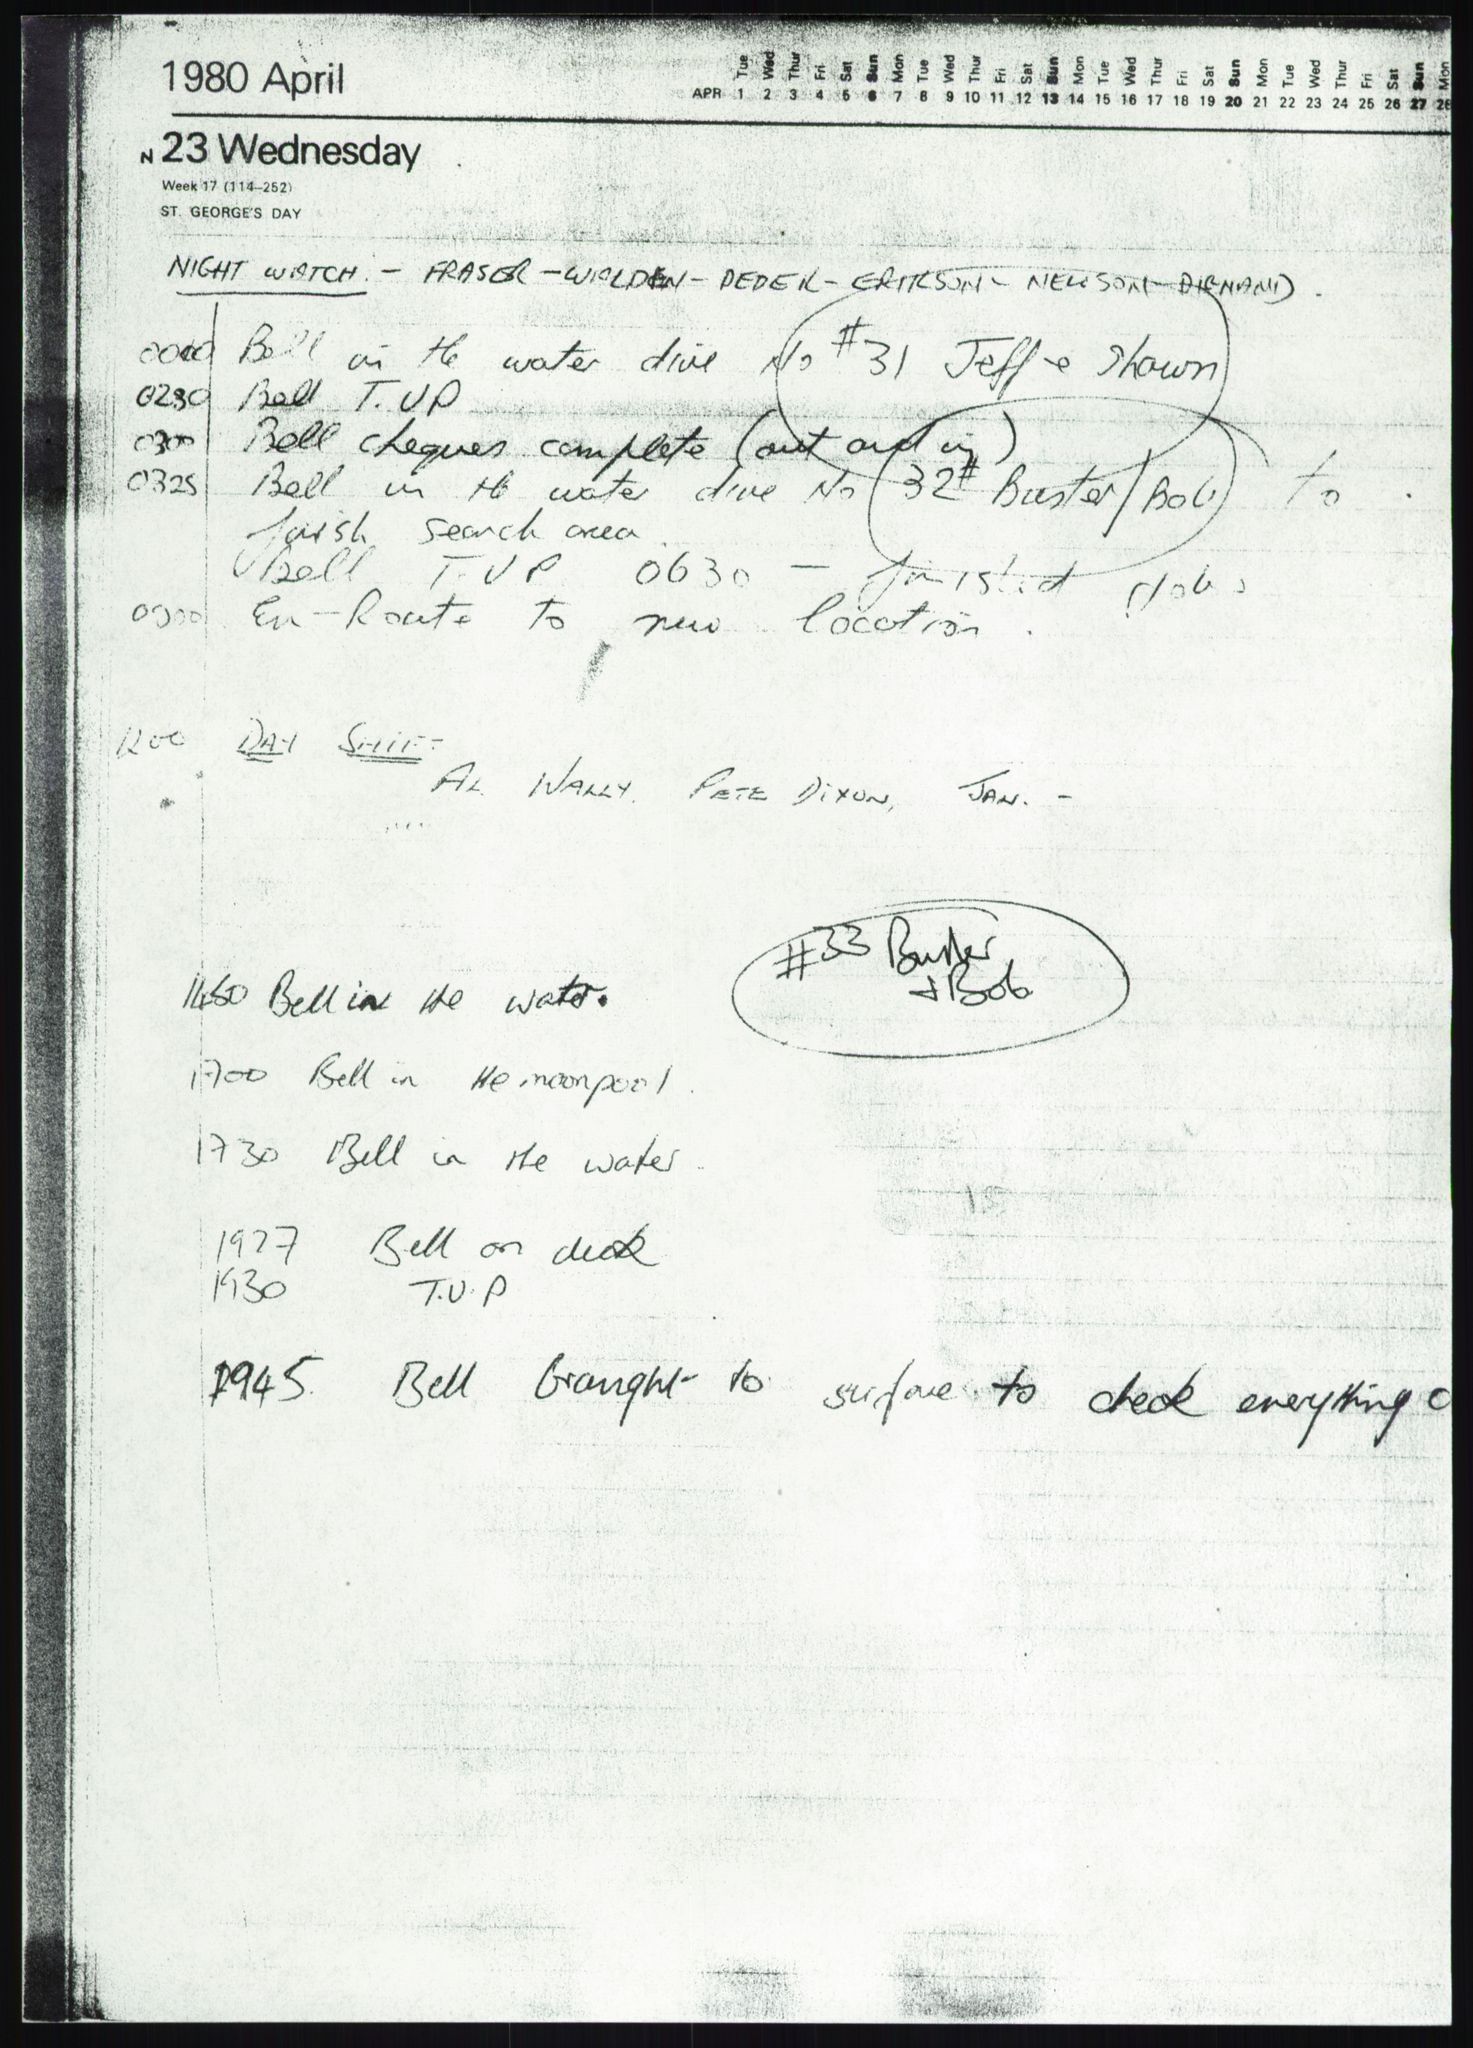 1980 April
Tue Wed Thur Fri Sat Sun Mon Tue Wed Thur Fri Sat Sun Mon Tue Wed Thur Fri Sat Sun Mon Tue Wed Thur Fri Sat Sun Mon
APR 1 2 3 4 5 6 7 8 9 10 11 12 13 14 15 16 17 18 19 20 21 22 23 24 25 26 27 28
N 23 Wednesday
Week 17 (114–252)
ST. GEORGE'S DAY
NIGHT WATCH :- FRASER - WALDEN - DEDEK - ERIKSON - NEILSON -
0000 Bell in the water dive No #31 Jeff + Shawn
0230 Bell T.UP
0300 Bell cheques complete (out and in)
0325 Bell in the water dive No 32# Buster/Bob to
finish search area.
Bell T.UP 0630 - finished
En-Route to new location.
1200 DAY SHIFT
AL WALLY. PETE DIXON, JAN. -
#33 Buster
+ Bob
Bell in the water.
1700 Bell in the moonpool.
1730 Bell in the water.
1927 Bell on deck
1930 T.U.P
1945. Bell brought to surface to check everything o